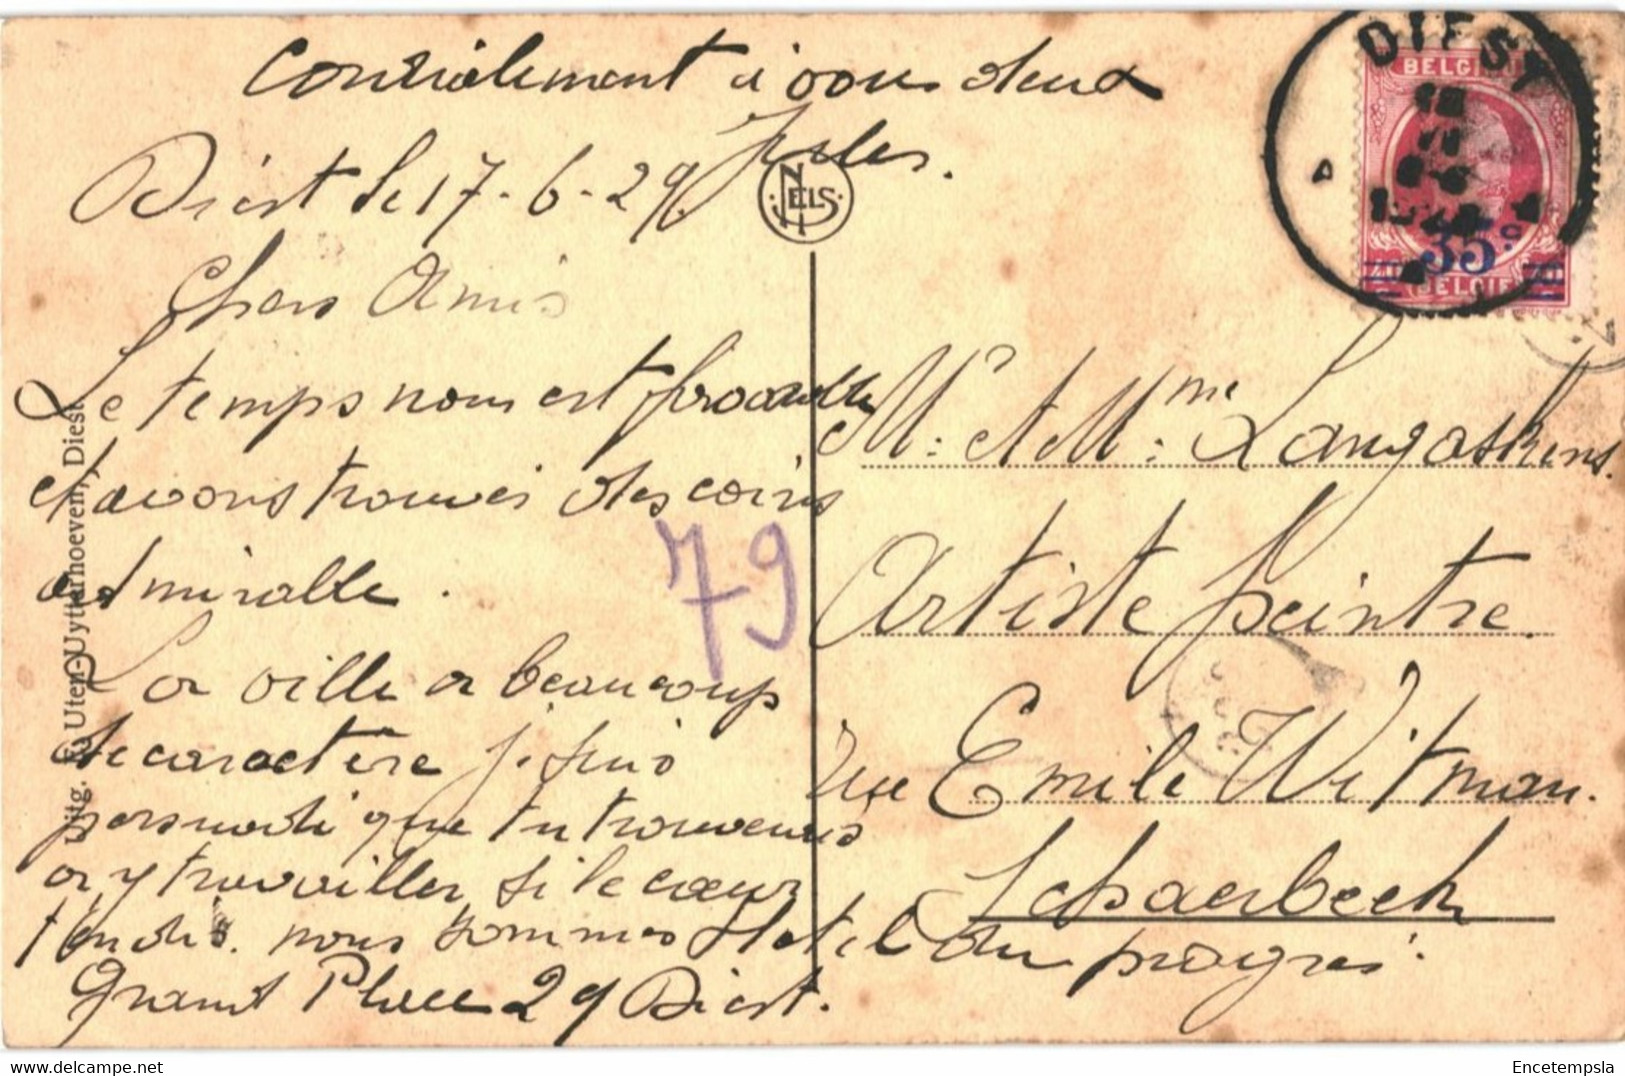 Cordialement à vous deux
Jules.
Diest le 17-6-29
Chers Amis
Le temps nous est favorable
et avons trouver des coins
admirable.
La ville a beaucoup
de caractère je suis
persuadé que tu trouverais
a y travailler si le cœur
t'en dis. nous sommes Hotel du progrès.
Grand Place 29 Diest.
79
NELS
Uitg. F. Uten-Uytterhoeven, Diest
DIEST
BELGIQUE
35c
BELGIE
Mr et Mme Langaskens.
Artiste Peintre.
rue Emile Witman.
Schaerbeek
Encetempsla